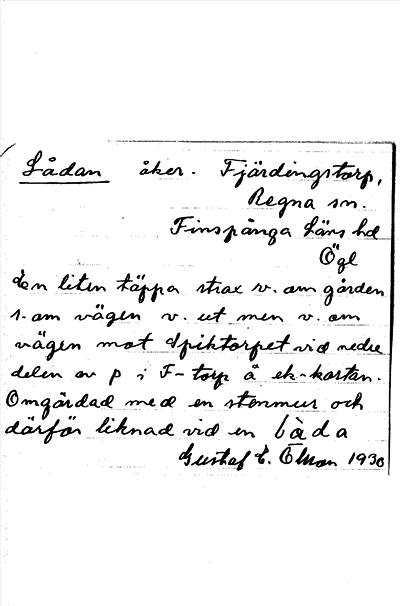 Lådan åker. Fjärdingstorp,
Regna sn.
Finspånga läns hd
Ögl
En liten täppa strax v. om gården
s. om vägen v. ut men v. om
vägen mot Spiktorpet vid nedre
delen av p i F-torp å ek-kartan.
Omgärdad med en stenmur och
därför liknad vid en låda
Gustaf E. 1930